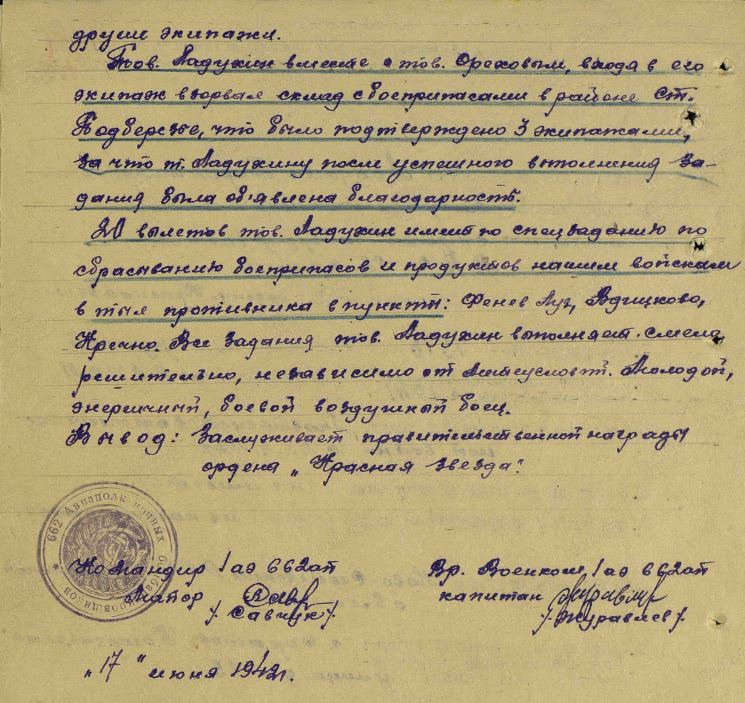 другие экипажи.
Тов. Ладухин вместе с тов. Ореховым, входя в его
экипаж взорвал склад с боеприпасами в районе Ст.
Подберезье, что было подтверждено 3 экипажами,
за что т. Ладухину после успешного выполнения за-
дания была об'явлена благодарность.
20 вылетов тов. Ладухин имеет по спецзаданию по
сбрасыванию боеприпасов и продуктов нашим войскам
в тыл противника в пункты: Финев Луг, Вдицково,
Кречно. Все задания тов. Ладухин выполняет смело,
решительно, независимо от Метеусловий. Молодой,
энергичный, боевой воздушный боец.
Вывод: Заслуживает правительственной награды
ордена „Красная звезда".
662 Авиаполк ночных бомбардировщиков
Командир 1 аэ 662 ап
Майор
/Савчук/
Вр. Военком 1 аэ 662 ап
капитан
/Журавлев/
„17" июня 1942 г.